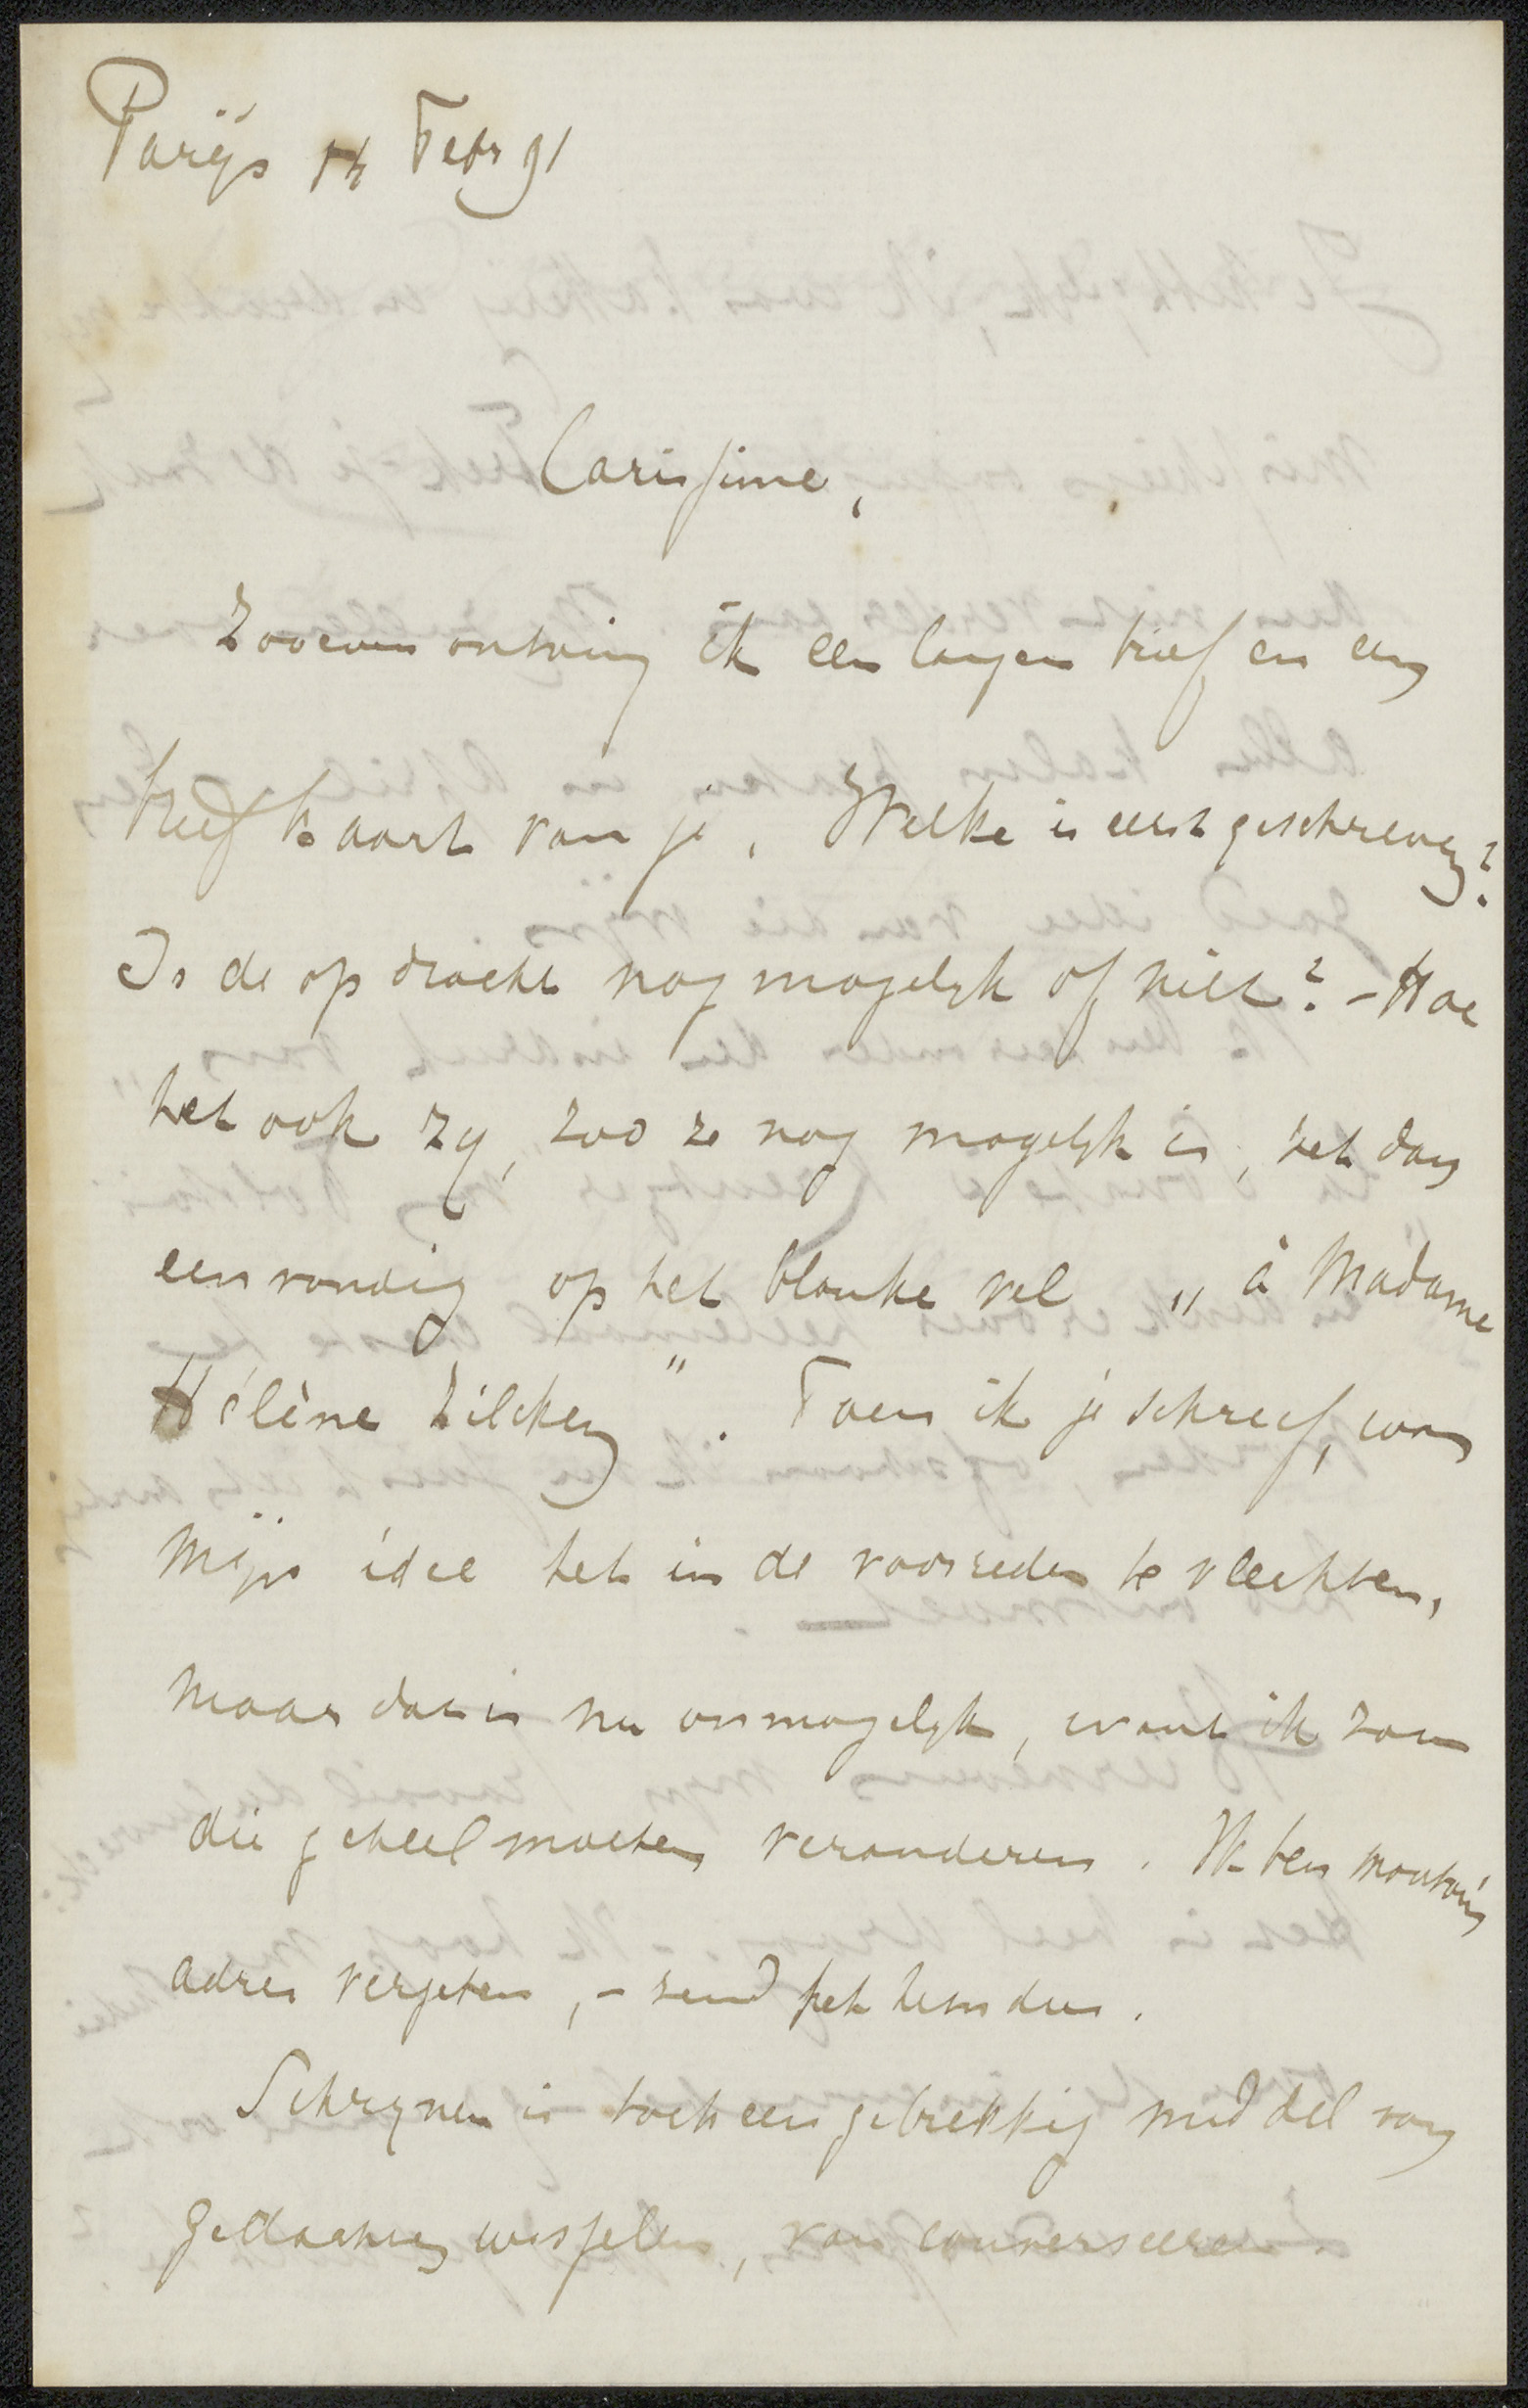 Parijs 14 Febr 91
Carissime,
Zooeven ontving ik een langen brief en een
briefkaart van je. Welke is eerst geschreven?
Is de opdracht nog mogelyk of niet? – Hoe
het ook zy, zoo ze nog mogelyk is, zet dan
eenvoudig op het blanke vel „à Madame
Hélène Zilcken". Toen ik je schreef, was
mijn idee het in de voorreden te vlechten,
maar dat is nu onmogelyk, want ik zou
die geheel moeten veranderen. Ik ben
adres vergeten, – zend het hem dus.
Schryven is toch een gebrekkig middel van
gedachten wisselen, van converseeren.